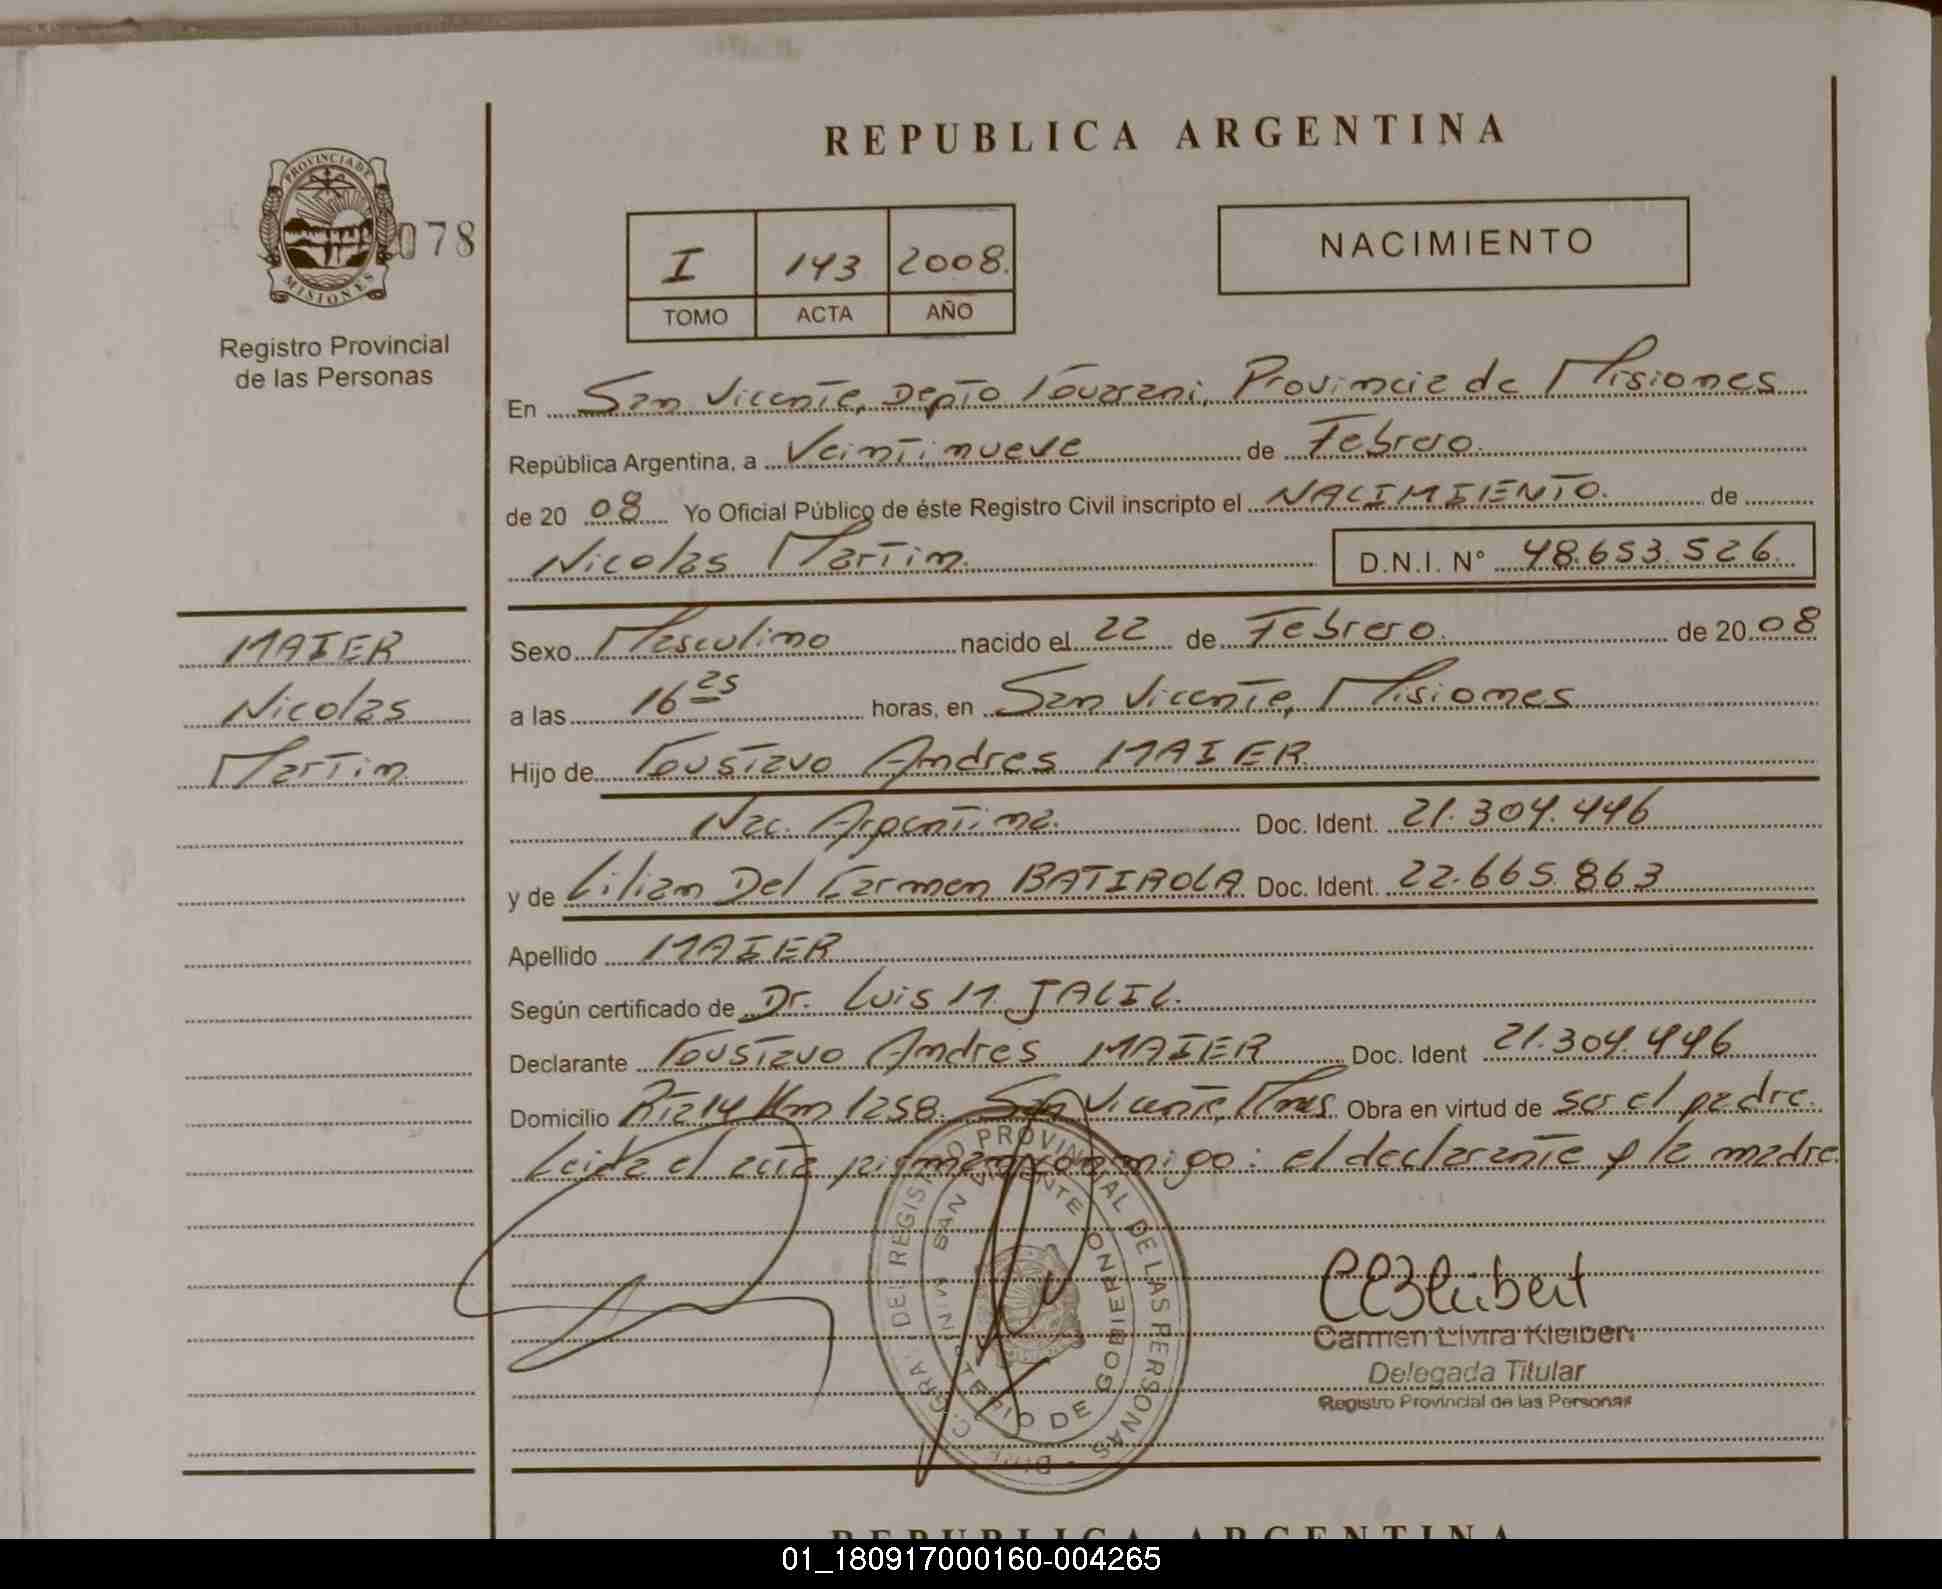 REPUBLICA ARGENTINA
PROVINCIA DE MISIONES
078
Registro Provincial
de las Personas
I 143 2008.
TOMO ACTA AÑO
NACIMIENTO
En San Vicente, Depto Guarani, Provincia de Misiones
República Argentina, a Veintinueve de Febrero.
de 2008 Yo Oficial Público de éste Registro Civil inscripto el NACIMIENTO. de
Nicolas Martin. D.N.I. N° 48.653.526.
MAIER
Nicolas
Martin
Sexo Masculino nacido el 22 de Febrero. de 2008
a las 16 25 horas, en San Vicente, Misiones
Hijo de Gustavo Andres MAIER.
Nac. Argentina. Doc. Ident. 21.304.446
y de Lilian Del Carmen BATIROLA Doc. Ident. 22.665.863
Apellido MAIER
Según certificado de Dr. Luis M. JALIL.
Declarante Gustavo Andres MAIER Doc. Ident 21.304.446
Domicilio Rta 14 Km 1258. San Vicente, Mnes. Obra en virtud de ser el padre.
Leida el acta firman conmigo: el declarante y la madre
REGISTRO PROVINCIAL DE LAS PERSONAS
SAN VICENTE
GOBIERNO
Carmen Elvira Kleibert
Delegada Titular
Registro Provincial de las Personas
REPUBLICA ARGENTINA
01_180917000160-004265